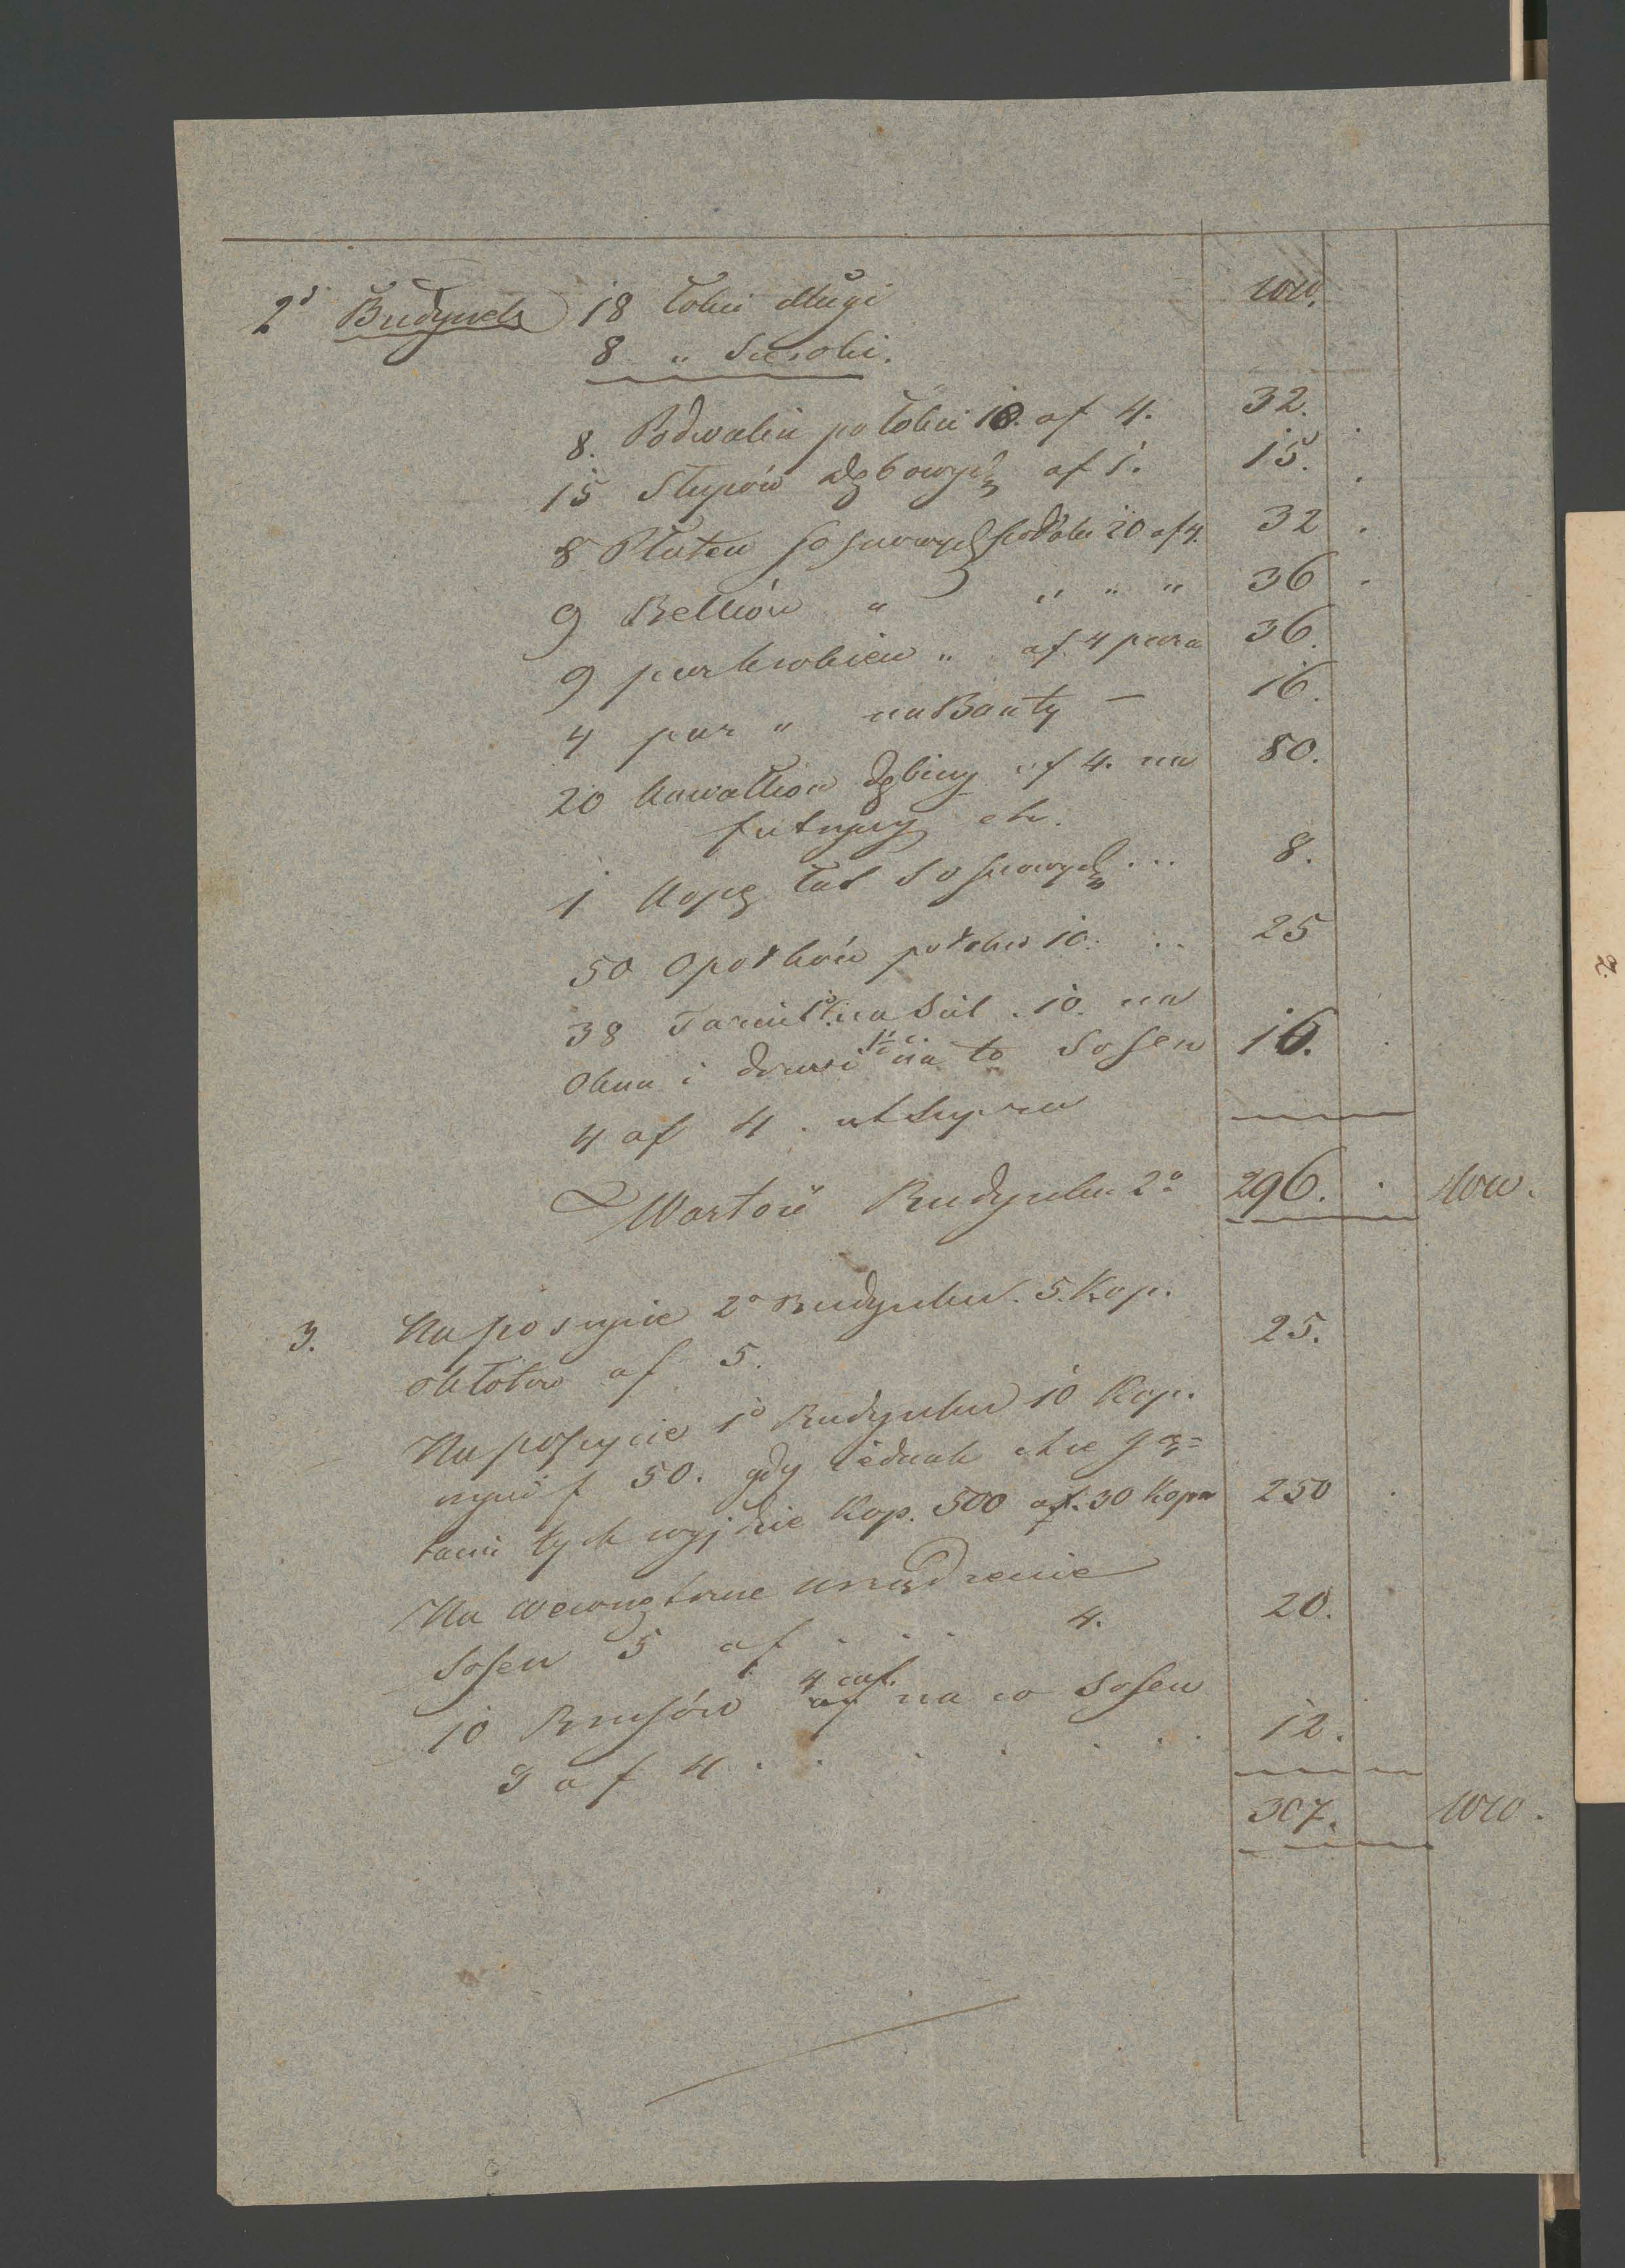 2° Budynek 18 łokci długi
8 " Szeroki.
8. Podwalin po łokci 18. af 4. 32.
15 Słupów dębowych af 1. 15.
8 Płatew sosnowych po łokci 20 af 4. 32
9 Belków " " " " 36
9 par krokiew " af. 4 para 36.
4 par " na Banty — 16.
20 kawałków dębiny af 4. na 80.
futryny etc.
1 Kopę łat Sosnowych ... 8.
50 Opołków po łokci 10. .. 25
38 Tarcic na 10. na
Okna i drzwi na to Sosen 16.
4 af 4. ut supra
Wartość Budynku 2° 296.
3. Na poszycie 2° Budynku. 5. Kop.
okłotów af 5. 25.
Na poszycie 1° Budynku 10 Kop.
50. gdy iednak chce gą=
tami tych wyjdzie Kop. 500 af. 30 Kopa 250
Na wewnętrzne urządzenie
Sosen 5 af . . . 4. 20.
10 Brusów na co Sosen
3 af 4 . . . . . . 12.
307.